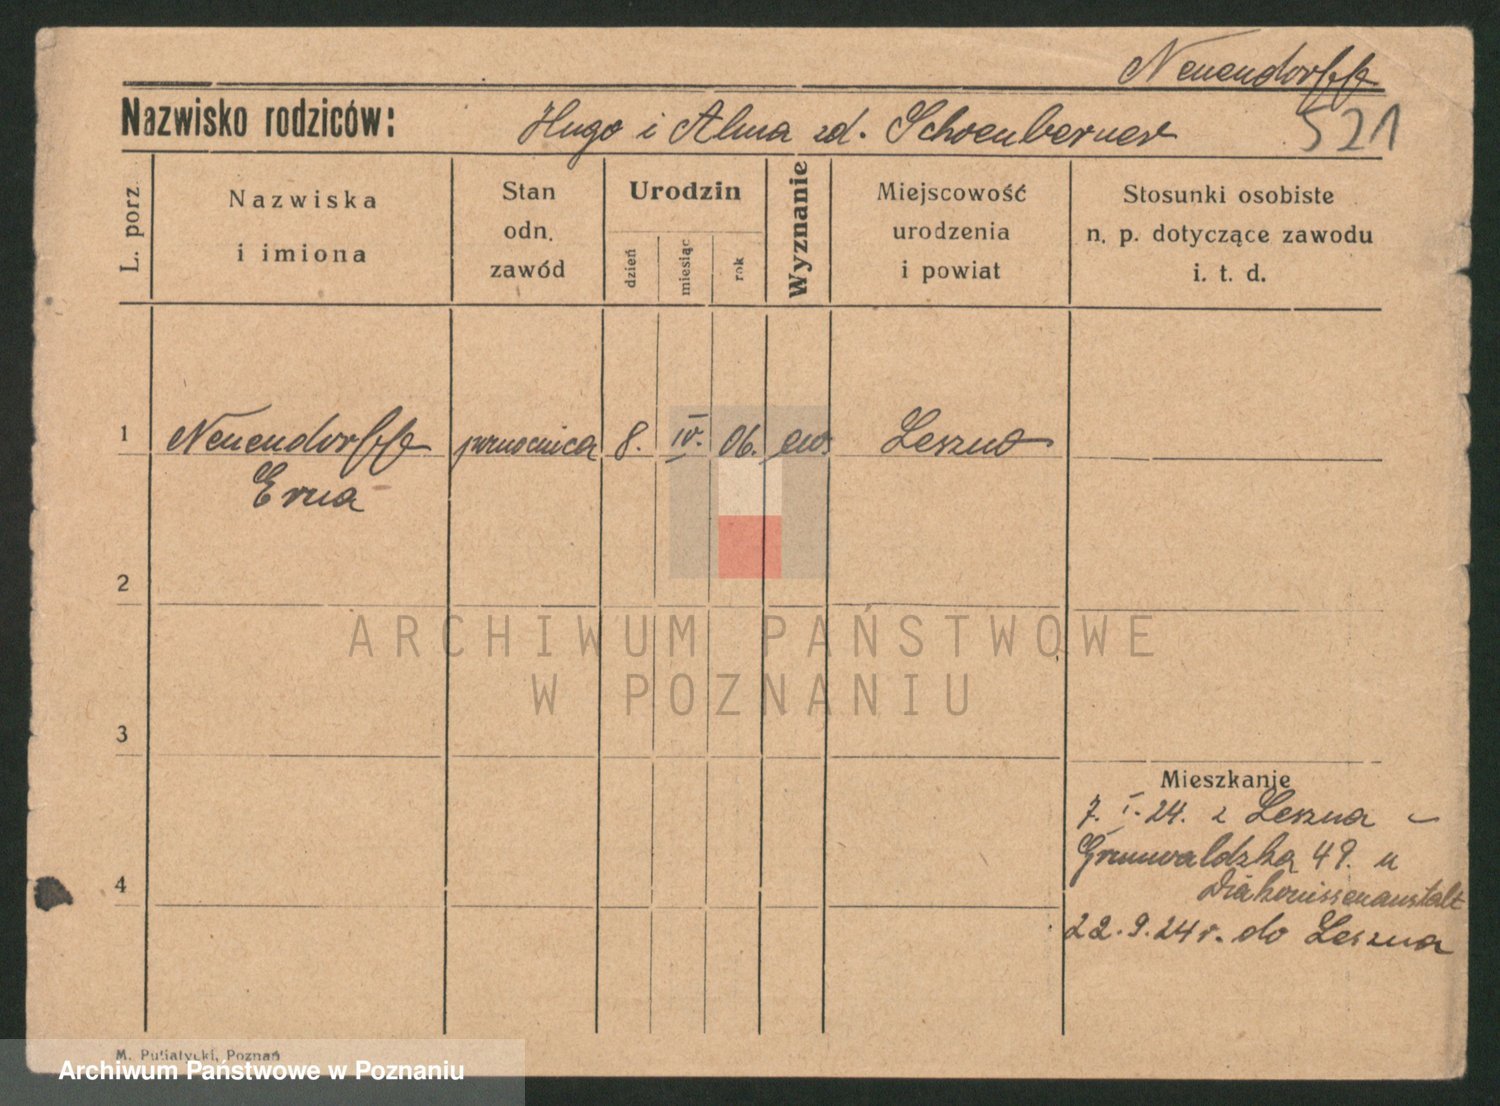 Neuendorff
Nazwisko rodziców: Hugo i Alma zd. Schoenberner 521
L. porz.
Nazwiska
i imiona
Stan
odn.
zawód
Urodzin
dzień
miesiąc
rok
Wyznanie
Miejscowość
urodzenia
i powiat
Stosunki osobiste
n. p. dotyczące zawodu
i. t. d.
1 Neuendorff pomocnica 8. IV. 06. ew. Leszno
Erna
2
ARCHIWUM PAŃSTWOWE
W POZNANIU
3
Mieszkanie
7. I. 24. z Leszna –
4 Grunwaldzka 49. u
Diakonissenanstalt
22.9.24 r. do Leszna
M. Putiatycki, Poznań
Archiwum Państwowe w Poznaniu